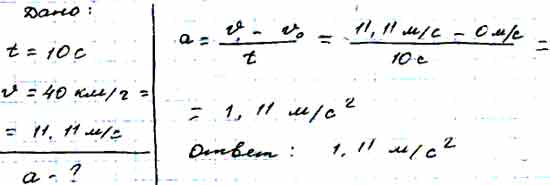 Дано:
t = 10 с
v = 40 км/ч =
= 11,11 м/с
a - ?
a = (v - v₀) / t = (11,11 м/с - 0 м/с) / 10 с =
= 1,11 м/с²
Ответ: 1,11 м/с²